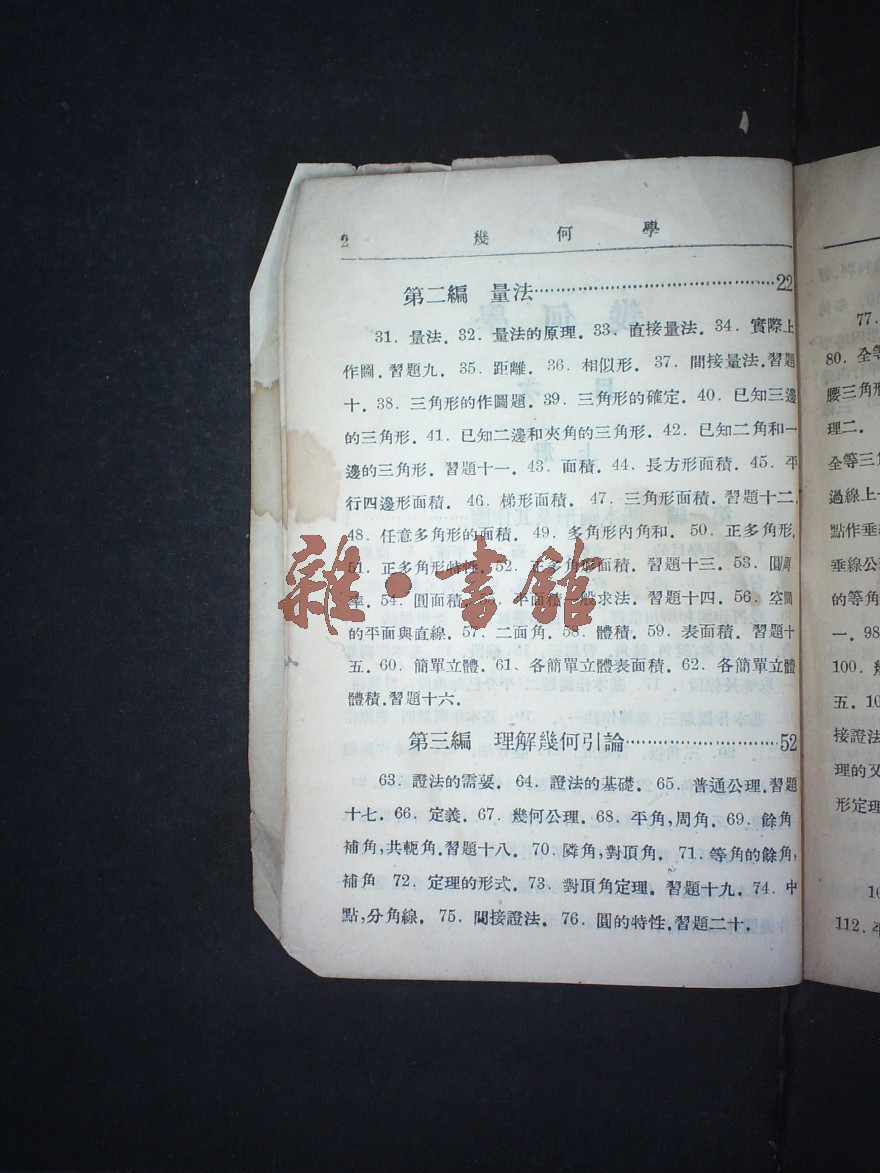 2 幾何學
第二編 量法……22
31. 量法. 32. 量法的原理. 33. 直接量法. 34. 實際上
作圖. 習題九. 35. 距離. 36. 相似形. 37. 間接量法. 習題
十. 38. 三角形的作圖題. 39. 三角形的確定. 40. 已知三邊
的三角形. 41. 已知二邊和夾角的三角形. 42. 已知二角和一
邊的三角形. 習題十一. 43. 面積. 44. 長方形面積. 45. 平
行四邊形面積. 46. 梯形面積. 47. 三角形面積. 習題十二.
48. 任意多角形的面積. 49. 多角形內角和. 50. 正多角形.
51. 正多角形特性. 52. 正多角形面積. 習題十三. 53. 圓周
率. 54. 圓面積. 平面積一般求法. 習題十四. 56. 空間
的平面與直線. 57. 二面角. 58. 體積. 59. 表面積. 習題十
五. 60. 簡單立體. 61. 各簡單立體表面積. 62. 各簡單立體
體積. 習題十六.
第三編 理解幾何引論……52
63. 證法的需要. 64. 證法的基礎. 65. 普通公理. 習題
十七. 66. 定義. 67. 幾何公理. 68. 平角,周角. 69. 餘角
補角,共軛角. 習題十八. 70. 隣角,對頂角. 71. 等角的餘角,
補角 72. 定理的形式. 73. 對頂角定理. 習題十九. 74. 中
點,分角線. 75. 間接證法. 76. 圓的特性. 習題二十.
雜·書館
77.
80. 全等
腰三角形
理二.
全等三角
過線上一
點作垂
垂線公
的等角
一. 98
100.
五. 10
接證法
理的
形定理
10
112. 平